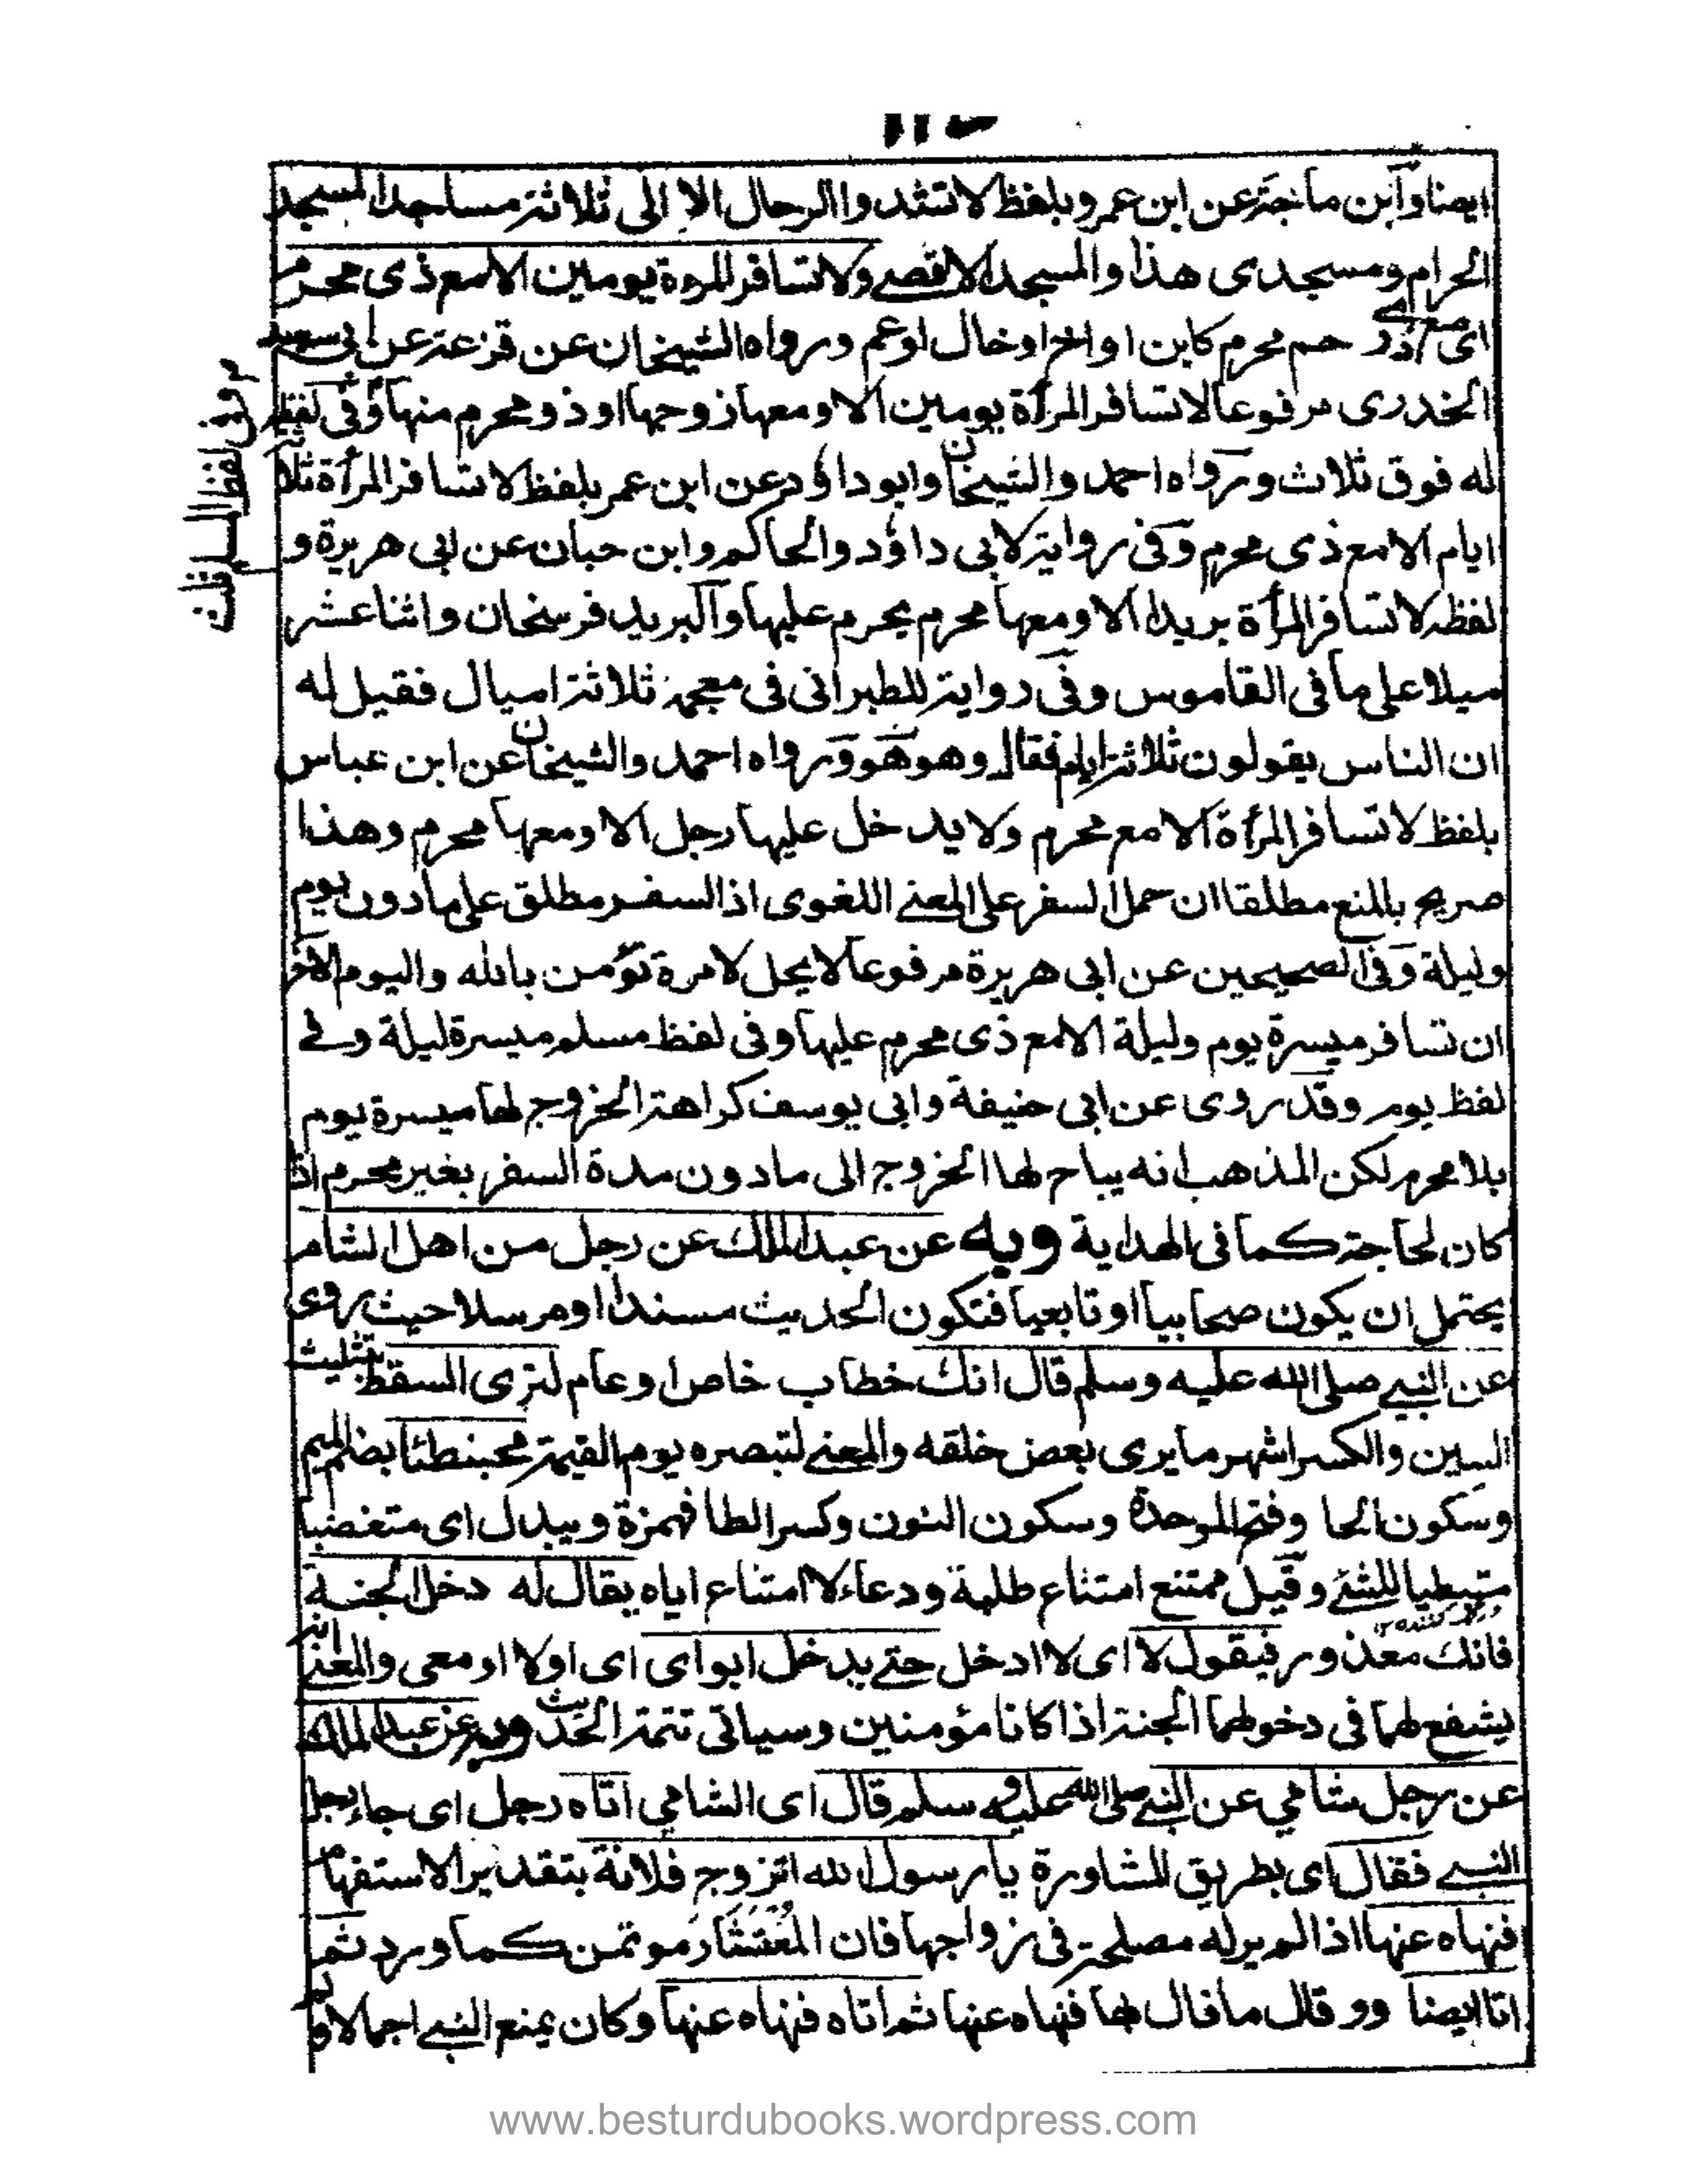 ايضا وابن ماجة عن ابن عمر وبلفظ لا تشدوا الرحال الا الى ثلاثة مساجد المسجد
الحرام ومسجدى هذا والمسجد الاقصے ولا تسافر المرءة يومين الا مع ذى محرم
اى مع ذى رحم محرم كابن او اخ او خال او عم ورواه الشيخان عن قزعة عن ابى سعيد
الخدرى مرفوعا لا تسافر المرأة يومين الا ومعها زوجها او ذو محرم منها وفى لفظ
له فوق ثلاث ورواه احمد والشيخان وابو داؤد عن ابن عمر بلفظ لا تسافر المرأة ثلاثة
ايام الا مع ذى محرم وفى رواية لابى داؤد والحاكم وابن حبان عن ابى هريرة و
لفظه لا تسافر المرأة بريدا الا ومعها محرم يحرم عليها والبريد فرسخان واثنا عشر
ميلا على ما فى القاموس وفى رواية للطبرانى فى معجمه ثلاثة اميال فقيل له
ان الناس يقولون ثلاثة ايام فقال وهو هو ورواه احمد والشيخان عن ابن عباس
بلفظ لا تسافر المرأة الا مع محرم ولا يدخل عليها رجل الا ومعها محرم وهذا
صريح بالمنع مطلقا ان حمل السفر على المعنے اللغوى اذ السفر مطلق على ما دون يوم
وليلة وفى الصحيحين عن ابى هريرة مرفوعا لا يحل لامرة تؤمن بالله واليوم الآخر
ان تسافر ميسرة يوم وليلة الا مع ذى محرم عليها وفى لفظ مسلم ميسرة ليلة وفے
لفظ يوم وقد روى عن ابى حنيفة وابى يوسف كراهة الخروج لها ميسرة يوم
بلا محرم لكن المذهب انه يباح لها الخروج الى ما دون مدة السفر بغير محرم اذا
كان لحاجة كما فى الهداية وبه عن عبد الملك عن رجل من اهل الشام
يحتمل ان يكون صحابيا او تابعيا فتكون الحديث مسندا او مرسلا حيث روى
عن النبے صلى الله عليه وسلم قال انك خطاب خاص او عام لترى السقط بتثليث
السين والكسر اشهر ما يرى بعض خلقه والمعنے لتبصره يوم القيمة محبنطئا بضم الميم
وسكون الحا وفتح الموحدة وسكون النون وكسر الطا فهمزة ويبدل اى متغضبا
مستبطيا للشئ وقيل ممتنع امتناع طلبة ودعاء لا امتناع اياه يقال له دخل الجنة
فانك معذور فيقول لا اى لا ادخل حتے يدخل ابواى اى اولا او معى والمعنے انه
يشفع لهما فى دخولهما الجنة اذا كانا مؤمنين وسياتى تتمة الحديث وبه عن عبد الملك
عن رجل شامي عن النبے صلى الله عليه وسلم قال اى الشامي اتاه رجل اى جاء رجل
النبے فقال اى بطريق المشاورة يا رسول الله اتزوج فلانة بتقدير الاستفهام
فنهاه عنها اذا لم ير له مصلحة فى زواجها فان المستشار موتمن كما ورد ثم
اتا ايضا وو قال ما قال لها فنهاه عنها ثم اتاه فنهاه عنها وكان يمنع النبے اجمالا و
www.besturdubooks.wordpress.com